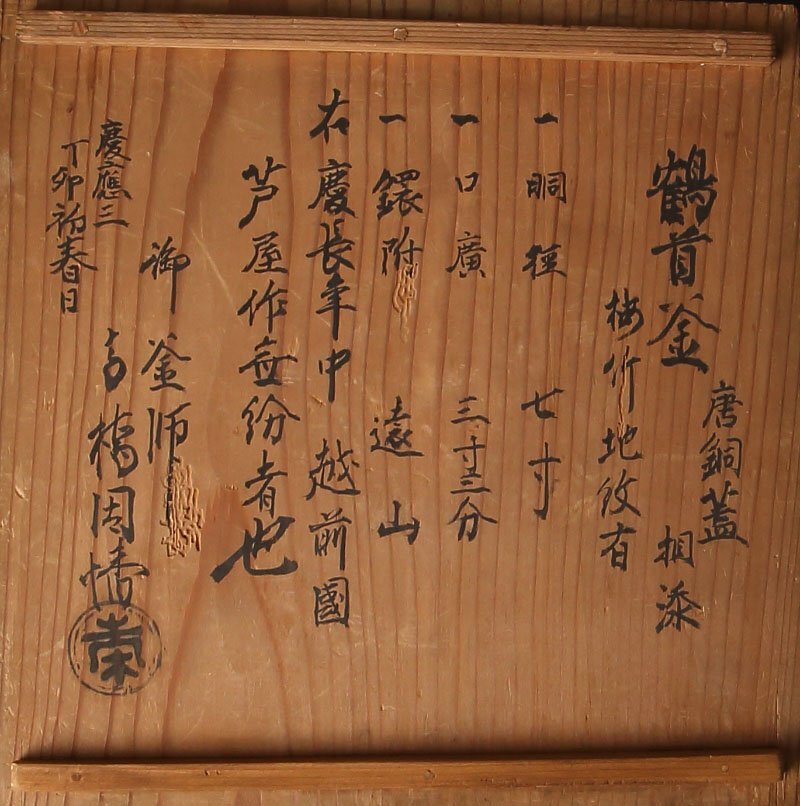 鶴首釜
唐銅蓋
相添
梅竹地紋有
一胴径 七寸
一口廣 三寸三分
一鐶附 遠山
右慶長年中 越前國
芦屋作無紛者也
御釜師
高橋因幡
慶應三
丁卯初春日